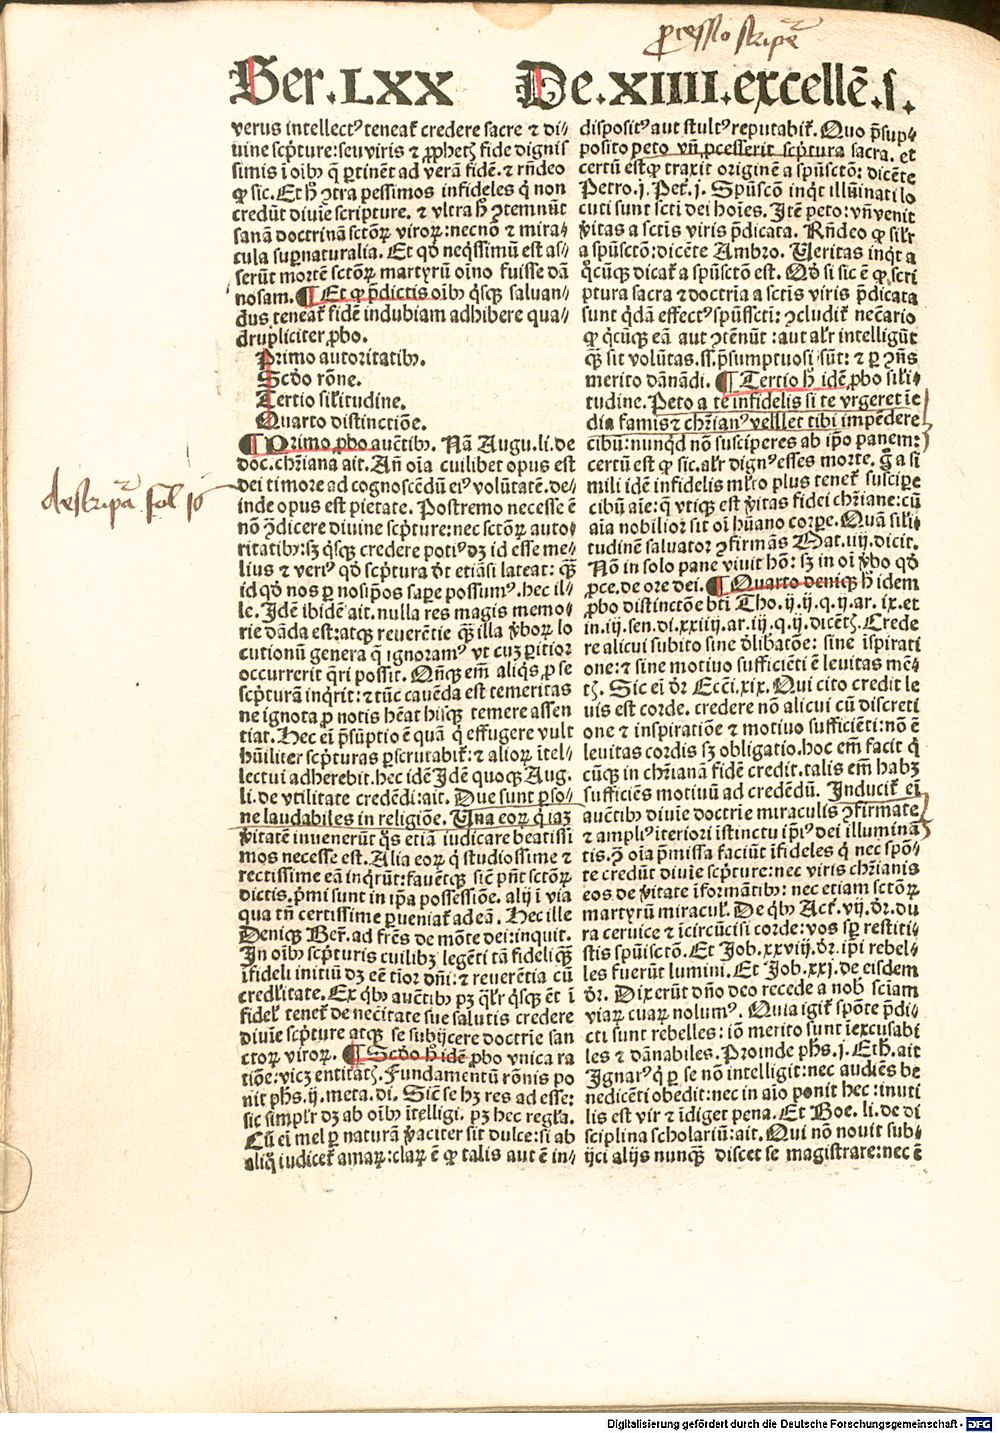 Ser.LXX De.XIIII.excellē.s.
verus intellectꝰ teneat̄ credere sacre ⁊ di⸗
uine scp̄ture:seu viris ⁊ ꝓphet̄ꝭ fide dignis
simis ī oībꝫ q̄ ꝑtinēt ad verā fidē. ⁊ rn̄deo
ꝙ sic. Et h̄ ꝯtra pessimos infideles q̄ non
credūt diuīe scripture. ⁊ vltra h̄ ꝯtemnūt
sanā doctrinā sctōꝝ viroꝝ: necnō ⁊ mira⸗
cula suꝑnaturalia. Et qd̄ neqͥssimū est as⸗
serūt mortē sctōꝝ martyrū oīno fuisse dā
nosam. ¶ Et ꝙ p̄dictis oībꝫ qͥsqꝫ saluan⸗
dus teneat̄ fidē indubiam adhibere qua⸗
drupliciter ꝓbo.
Primo autoritatibꝫ.
Scd̄o rōne.
Tertio sil̄itudine.
Quarto distinctiōe.
¶ Primo ꝓbo auc̄tibꝫ. Nā Augu.li.de
doc.chr̄iana ait. An̄ oīa cuilibet opus est
dei timore ad cognoscēdū eiꝰ volūtatē.de⸗
inde opus est pietate. Postremo necesse ē
nō ꝯdicere diuine scp̄ture:nec sctōꝝ auto⸗
ritatibꝫ:sꝫ qͥsqꝫ credere potiꝰ dꝫ id esse me⸗
lius ⁊ veriꝰ qd̄ scp̄tura d̄t etiāsi lateat: qꝫ̄
id qd̄ nos ꝑ nosip̄os saꝑe possumꝰ. hec il⸗
le. Idē ibidē ait. nulla res magis memo⸗
rie dāda est:atqꝫ reuerētie qꝫ̄ illa v̄boꝝ lo
cutionū genera q̄ ignoramꝰ vt cuꝫ ꝑitior
occurrerit q̄ri possit. Qn̄qꝫ em̄ aliqͥs ꝓ se
scp̄turā inqͥrit: ⁊ tūc cauēda est temeritas
ne ignota ꝓ notis hēat hisqꝫ temere assen
tiat. Hec ei̅ p̄sūptio ē quā qͥ effugere vult
hūiliter scp̄turas ꝑscrutabit̄: ⁊ alioꝝ ītel⸗
lectui adherebit.hec idē Idē quoqꝫ Aug.
li.de vtilitate credēdi:ait. Due sunt ꝑso⸗
ne laudabiles in religiōe. Una eoꝝ qͥ iaꝫ
v̄itatē inuenerūt qͦs etiā iudicare beatissi
mos necesse est. Alia eoꝝ qͥ studiosime ⁊
rectissime eā inqͥrūt:fauētqꝫ siē pn̄t sctōꝝ
dictis.p̄mi sunt in ip̄a possessiōe. alij ī via
qua tn̄ certissime ꝑueniat̄ ad eā. Hec ille
Deniqꝫ Ber̄.ad fr̄es de mōte dei:inquit.
In oībꝫ scp̄turis cuilibꝫ legēti tā fideliqꝫ̄
īfideli initiū dꝫ eē tīor dn̄i:⁊ reuerētia cū
credl̄itate. Ex qͥbꝫ auc̄tibꝫ pꝫ ql̄r qͥsqꝫ ēt ī
fidel̄ tenet̄ de nec̄itate sue salutis credere
diuīe scp̄ture atqꝫ se subijcere doctrīe san
ctoꝝ viroꝝ. ¶ Scd̄o h̄ idē ꝓbo vnica ra
tiōe:vicꝫ entitat̄ꝭ. Fundamentū rōnis po
nit ph̄s.ij.meta.di. Sic̄ se hꝫ res ad esse:
sic simpl̄r dꝫ ab oībꝫ ītelligi. pꝫ hec regl̄a.
Cū ei̅ mel ꝑ naturā v̄aciter sit dulce:si ab
aliqͥ iudicet̄ amaꝝ:claꝝ ē ꝙ talis aut ē in⸗
dispositꝰ aut stultꝰ reputabit̄. Quo p̄sup⸗
posito peto vn̄ ꝓcesserit scp̄tura sacra. et
certū est ꝙ traxit originē a spūsctō: dicēte
Petro.j.Pet̄.j. Spūscō inqͥt illūinati lo
cuti sunt sctī dei hoīes. Itē peto:vn̄ venit
v̄itas a sctīs viris p̄dicata. Rn̄deo ꝙ sil̄r
a spūsctō:dicēte Ambro. Ueritas inqͥt a
qͦcūqꝫ dicat̄ a spūsctō est. Qd̄ si sic ē ꝙ scri
ptura sacra ⁊ doctrīa a sctīs viris p̄dicata
sunt qͥdā effectꝰ spūssctī: ꝯcludit̄ nec̄ario
ꝙ qͥcūqꝫ eā aut ꝯtēnūt :aut al̄r intelligūt
qꝫ̄ sit volūtas.ss.p̄sumptuosi sūt: ⁊ ꝑ ꝯn̄s
merito dānādi. ¶ Tertio h̄ idē ꝓbo sil̄i⸗
tudine. Peto a te infidelis si te vrgeret īe
dia famis ⁊ chr̄ianꝰ vellet tibi impēdere
cibū:nunqͥd nō susciperes ab ip̄o panem:
certū est ꝙ sic.al̄r dignꝰ esses morte. g̊ a si
mili idē infidelis ml̄to plus tenet̄ suscipe
cibū aīe:q̄ vtiqꝫ est v̄itas fidei chr̄iane:cū
aīa nobilior sit oī hūano corꝑe. Quā sil̄i⸗
tudinē saluator ꝯfirmās Mat.iiij.dicit.
Nō in solo pane viuit hō: sꝫ in oī v̄bo qd̄
ꝓce.de ore dei. ¶ Quarto deniqꝫ h̄ idem
ꝓbo distinctōe btī Tho.ij.ij.q.ij.ar. ix.et
in.iij.sen.di.xxiiij.ar.iij.q.ij.dicēt̄ꝭ. Crede
re alicui subito sine d̄libatōe: sine īspirati
one:⁊ sine motiuo sufficiēti ē leuitas mē⸗
t̄ꝭ. Sic ei̅ d̄r Ecc̄i.xix. Qui cito credit le
uis est corde. credere nō alicui cū discreti
one ⁊ inspiratiōe ⁊ motiuo sufficiēti:nō ē
leuitas cordis sꝫ obligatio.hoc em̄ facit qͥ
cūqꝫ in chr̄ianā fidē credit.talis em̄ habꝫ
sufficiēs motiuū ad credēdū. Inducit̄ ei̅
auc̄tibꝫ diuīe doctrīe miraculis ꝯfirmate
⁊ ampliꝰ īteriori īstinctu ip̄iꝰ dei illuminā
tis.ꝯ oīa p̄missa faciūt īfideles qͥ nec spō⸗
te credūt diuīe scp̄ture:nec viris chr̄ianis
eos de v̄itate īformātibꝫ: nec etiam sctōꝝ
martyrū miracul̄. De qͥbꝫ Act̄.vij.d̄r.du
ra ceruice ⁊ īcircūcisi corde:vos sꝑ restiti⸗
stis spūisctō. Et Job.xxviij.d̄r.ip̄i rebel⸗
les fuerūt lumini. Et Job.xxj.de eisdem
d̄r. Dixerūt dn̄o deo recede a nob̄ sciam
viaꝝ tuaꝝ nolumꝰ. Quia igit̄ spōte p̄di⸗
cti sunt rebelles: iō merito sunt īexcusabi
les ⁊ dānabiles. Proinde ph̄s.j. Eth̄.ait
Ignarꝰ qͥ ꝑ se nō intelligit:nec audiēs be
nedicēti obedit:nec in aīo ponit hec :inuti
lis est vir ⁊ īdiget pena. Et Boe. li.de di
sciplina scholariū:ait. Qui nō nouit sub⸗
ijci alijs nunqꝫ̄ discet se magistrare:nec ē
Digitalisierung gefördert durch die Deutsche Forschungsgemeinschaft - DFG